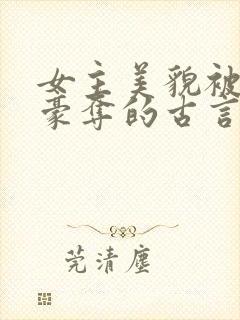 女主美貌被
豪夺的古言
莞清尘